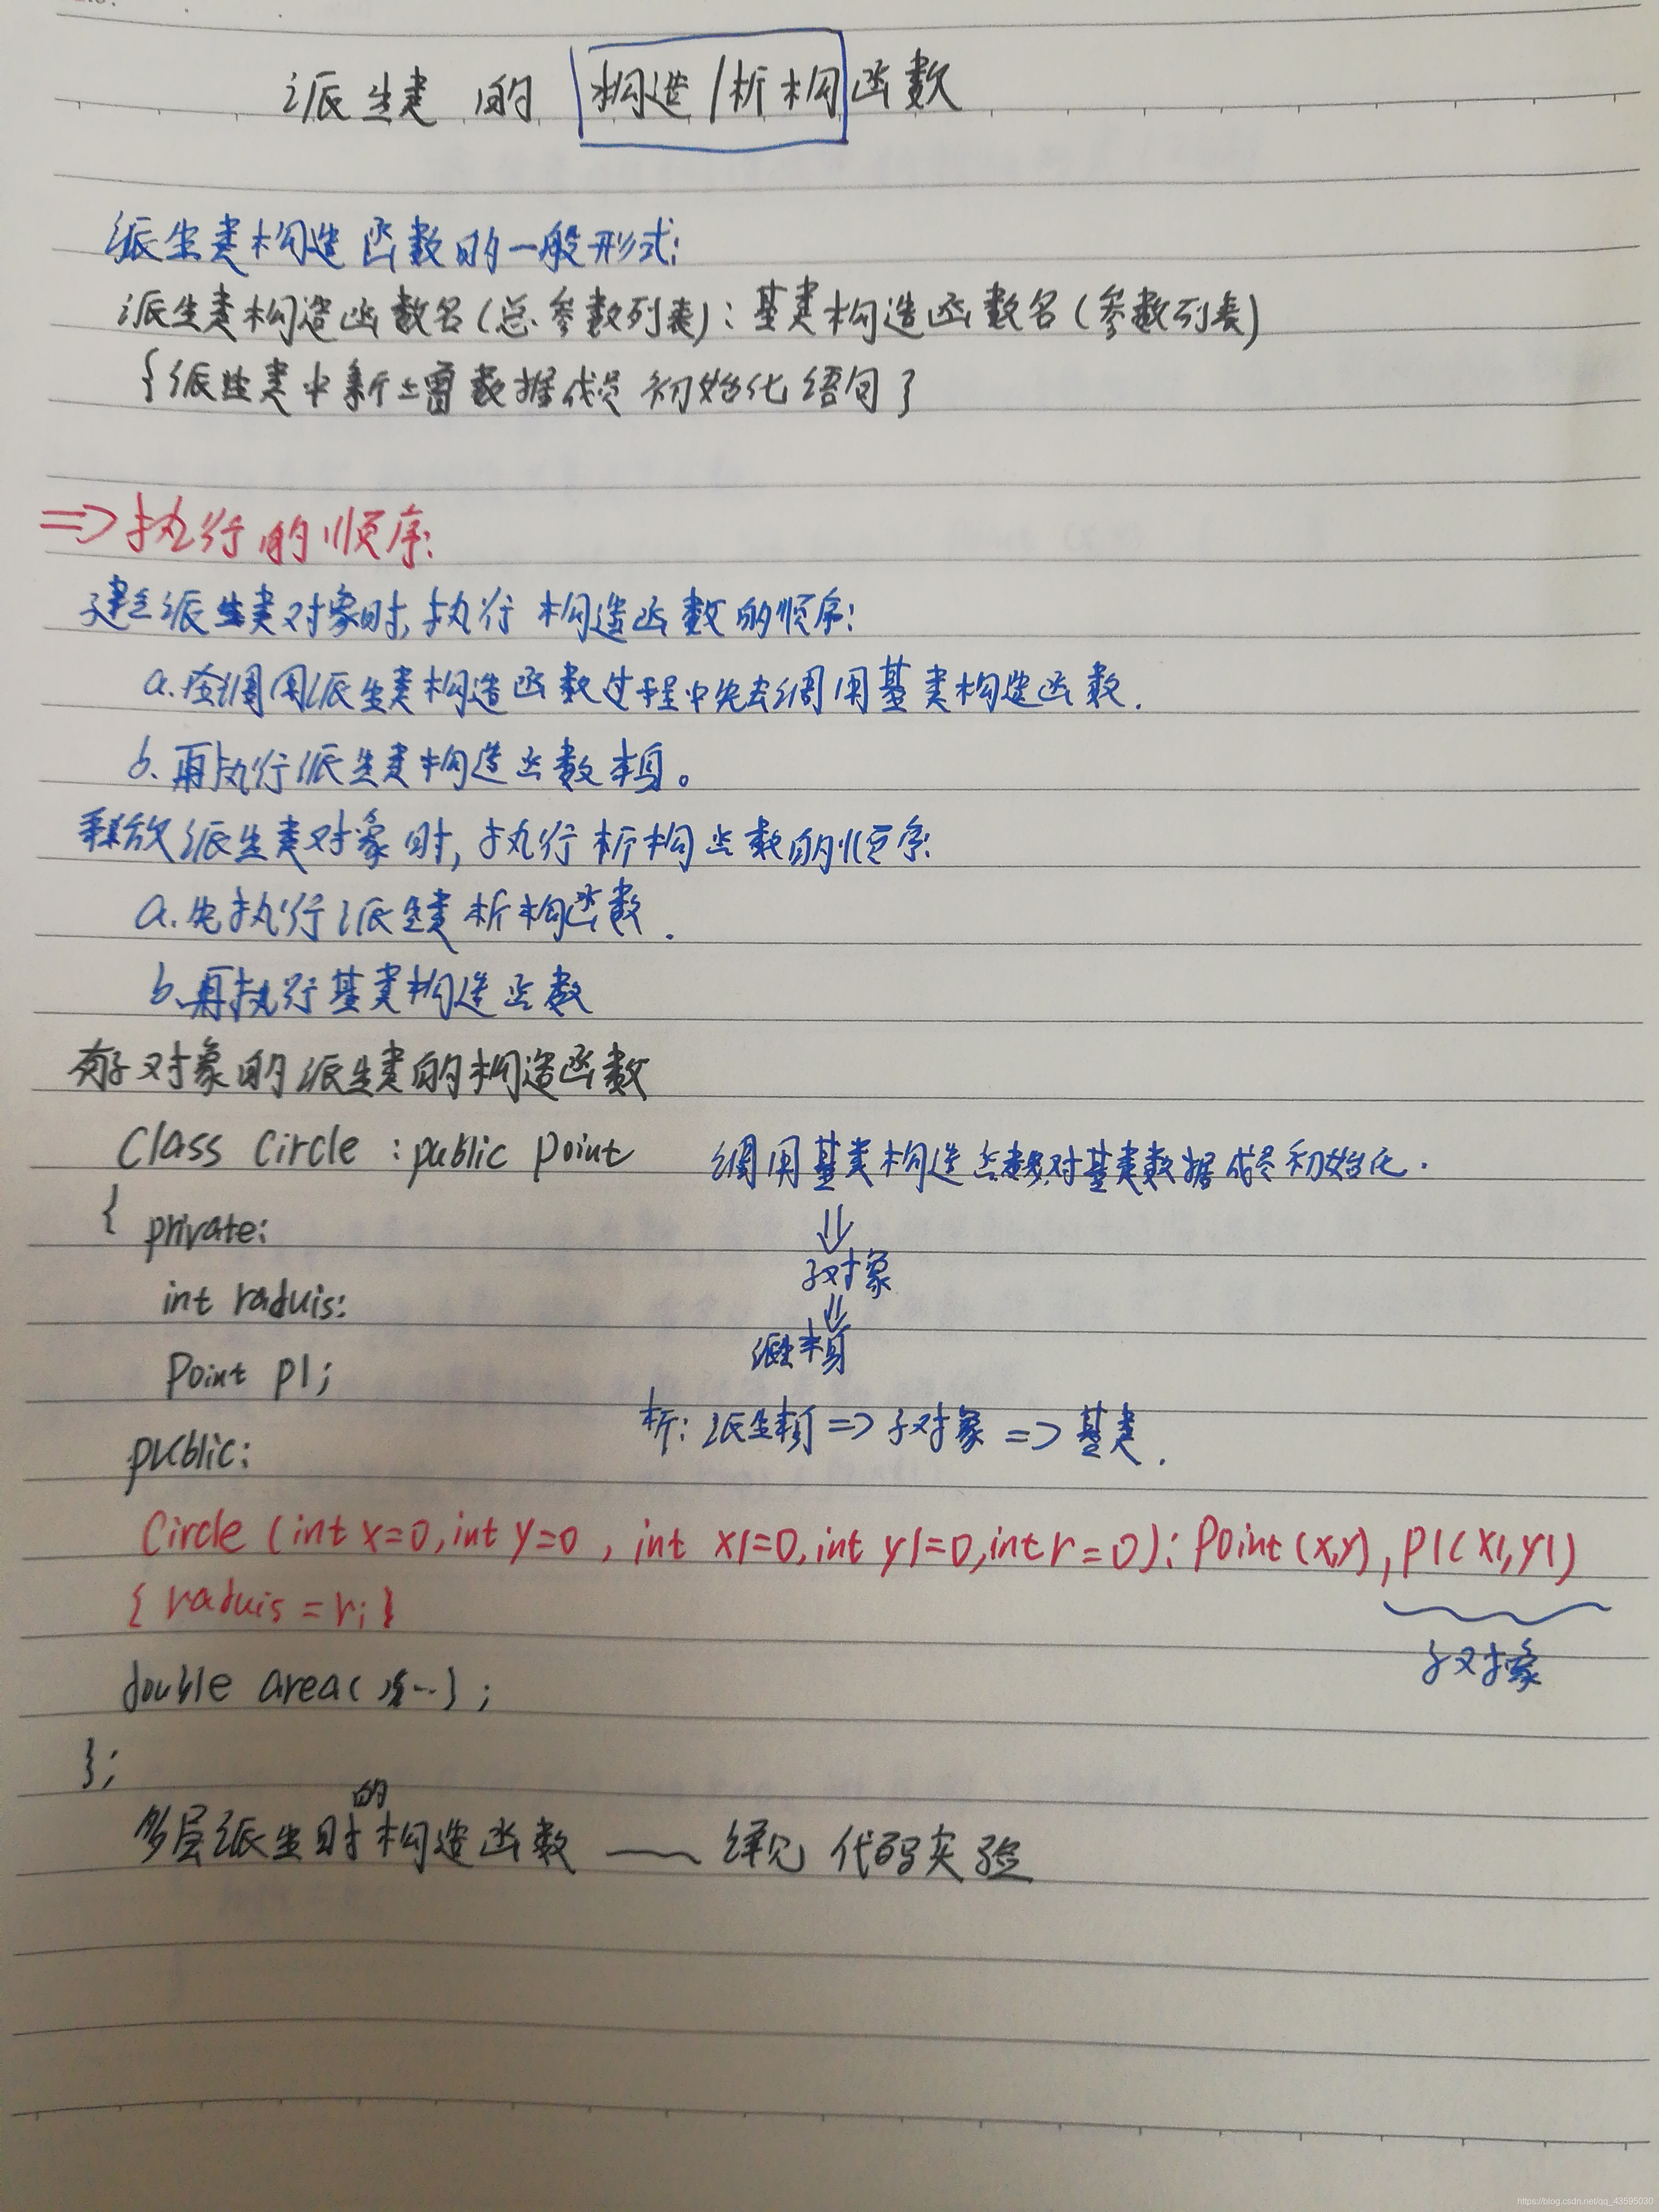 派生类的构造/析构函数
派生类构造函数的一般形式:
派生类构造函数名(总参数列表):基类构造函数名(参数列表)
{派生类中新增数据成员初始化语句}
=>执行的顺序:
建立派生类对象时,执行构造函数的顺序:
a.在调用派生类构造函数过程中先去调用基类构造函数.
b.再执行派生类构造函数本身。
释放派生类对象时,执行析构函数的顺序:
a.先执行派生类析构函数.
b.再执行基类构造函数
有子对象的派生类的构造函数
Class Circle :public point
调用基类构造函数对基类数据成员初始化.
{ private:
⇓
子对象
int raduis:
⇓
派生本身
Point p1;
析:派生本身=>子对象=>基类.
public:
Circle (int x=0,int y=0 , int x1=0,int y1=0,int r=0):Point(x,y),p1(x1,y1)
{ raduis=r;}
子对象
double area( ...);
};
多层派生时的构造函数——详见 代码实验
https://blog.csdn.net/qq_43595030